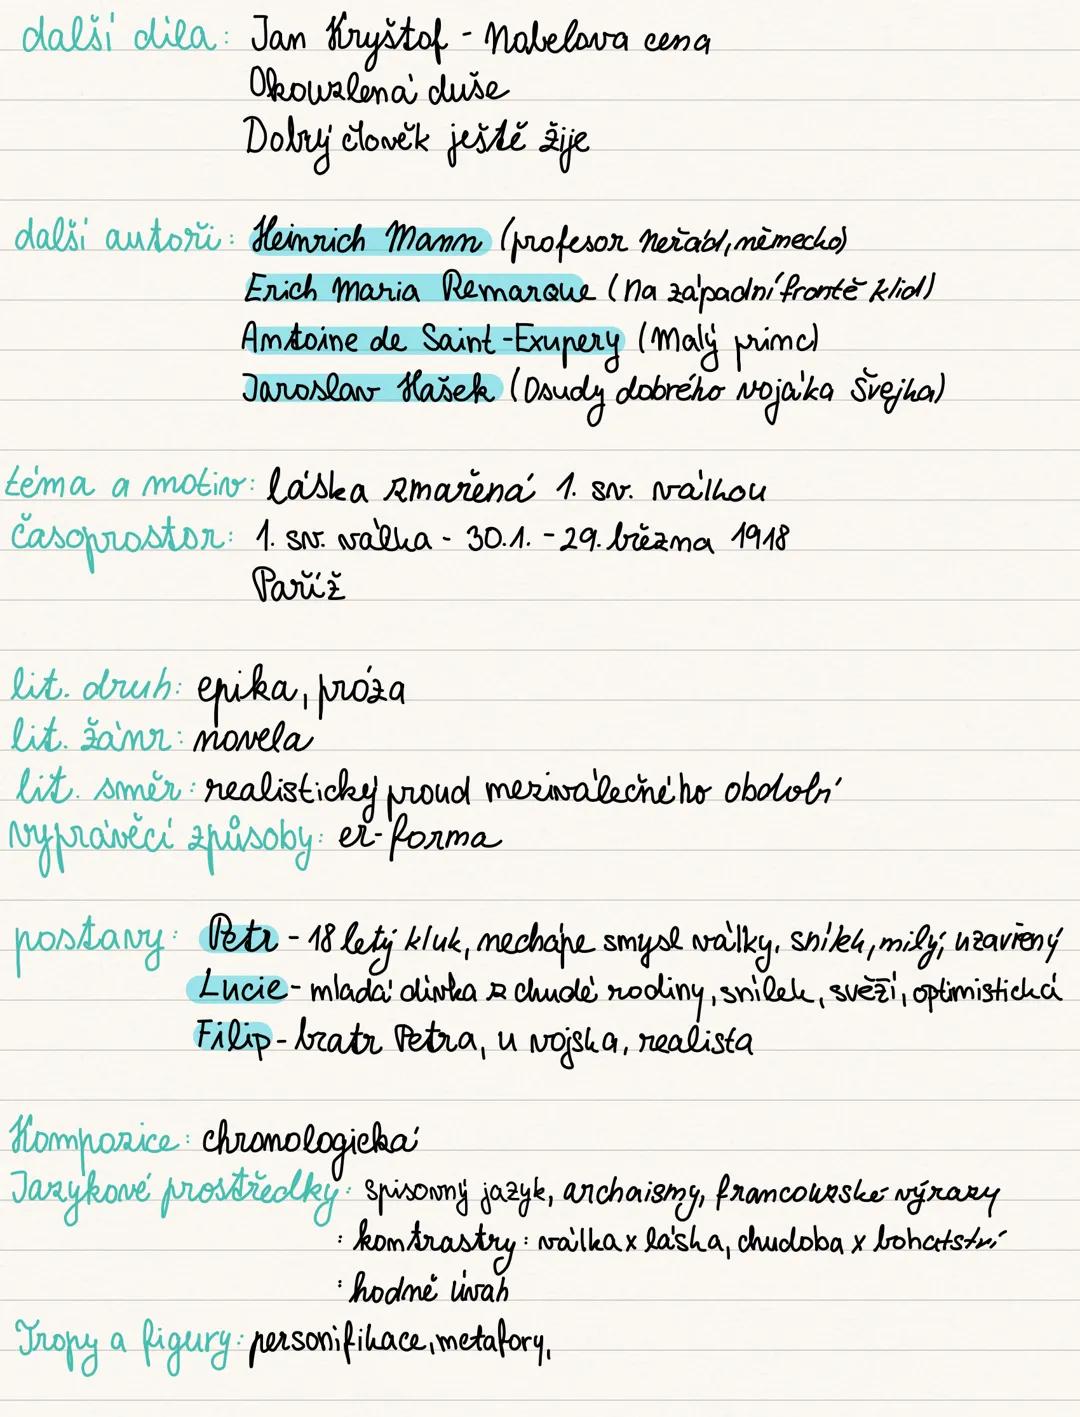 další díla: Jan Kryštof - Nobelova cena
Okouzlená duše
Dobrý člověk ještě žije
další autoři: Heinrich Mann (profesor Neřád, německo)
Erich Maria Remarque (Na západní frontě klid)
Antoine de Saint-Exupery (Malý princ)
Jaroslav Hašek (Osudy dobrého vojáka Švejka)
téma a motiv: láska zmařená 1. sv. válkou
časoprostor: 1. sv. válka - 30.1. - 29. března 1918
Paříž
lit. druh: epika, próza
lit. žánr: novela
lit. směr: realistický proud meziválečného období
vyprávěcí způsoby: er-forma
postavy: Petr - 18 letý kluk, nechápe smysl války, snílek, milý, uzavřený
Lucie - mladá dívka z chudé rodiny, snílek, svěží, optimistická
Filip - bratr Petra, u vojska, realista
Kompozice: chronologická
Jazykové prostředky: spisovný jazyk, archaismy, francouzské výrazy
: kontrastry: válka x láska, chudoba x bohatství
: hodně úvah
Tropy a figury: personifikace, metafory,